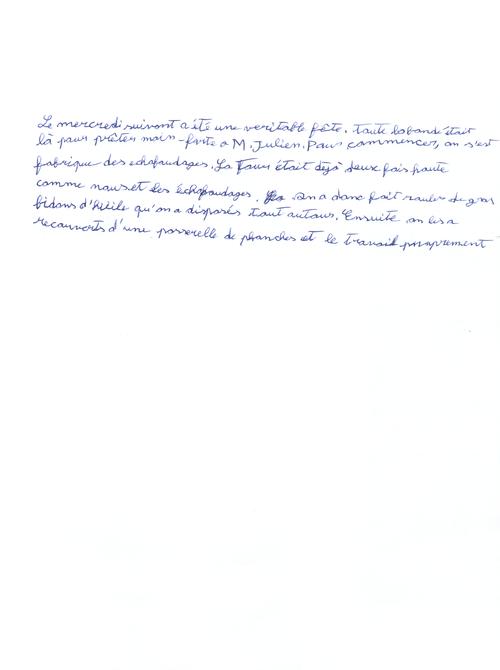 Le mercredi suivant a été une veritable fête. toute la bande était
là pour prêter main-forte à M. Julien. Pour commencer, on s'est
fabrique des echafaudages. La Tour était dejà deux fois haute
comme nous et les échafaudages. on a donc fait rouler de gros
bidons d'huile qu'on a disposés tout autour. Ensuite on les a
recouverts d'une passerelle de planches et le travail proprement